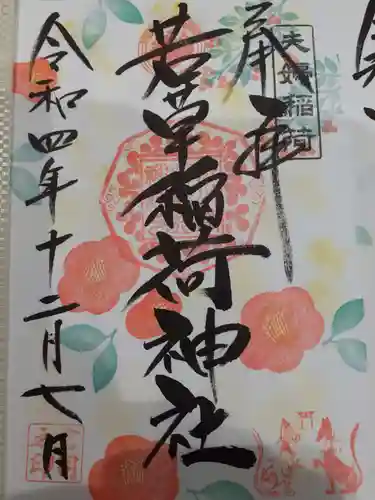 奉拝
夫婦稲荷
若草稲荷神社
令和四年十二月七月